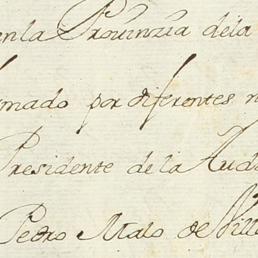 en la Provinzia dela
mado por diferentes
Presidente de la Aud
Pedro Malo de Ville